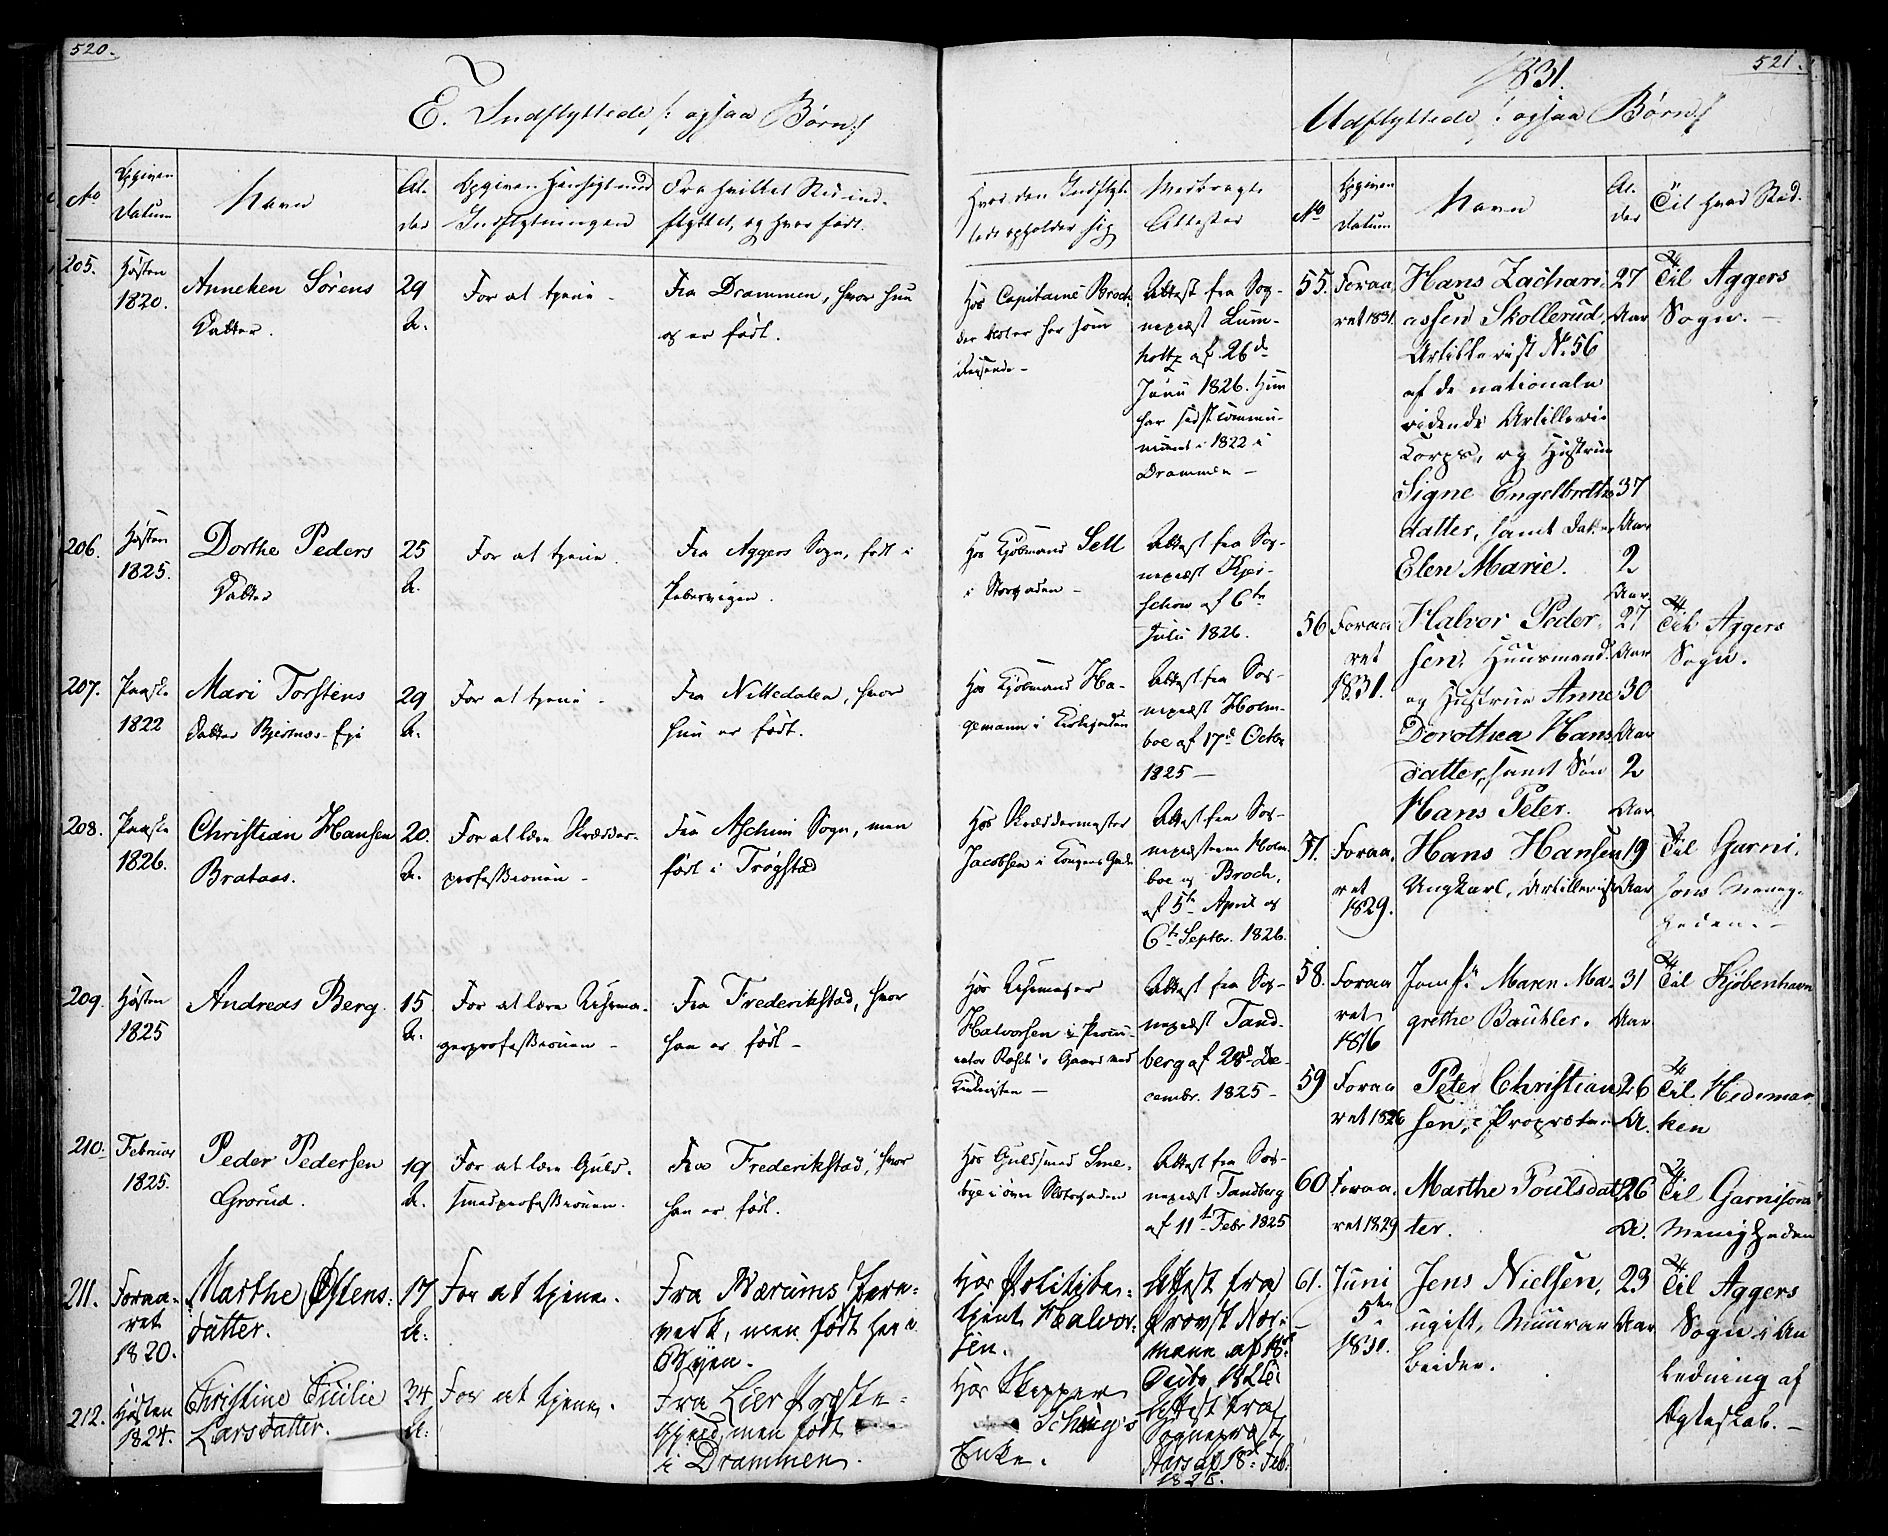 520.
E. Indflyttede /: ogsaa Børn :/
No
Opgiven Datum
Navn
Alder
Opgiven Hensigt med Indflytningen
Fra hvilket Sted indflyttet, og hvor født.
Hvor den Indflyttede opholder sig
Medbragte Attester
205.
Høsten 1820.
Anneken Sørens Datter.
29 A.
For at tjene -
Fra Drammen, hvor hun og er født.
Hos Capitaine Broch
der boer her som
Attest fra Sognepræst Lumholtz af 26d Junii 1826. Hun har sidst communiceret i 1822 i Drammen -
206.
Høsten 1825.
Dorthe Peders Datter
25 A.
For at tjene.
Fra Aggers Sogn, født i Pebervigen.
Hos Kjøbmand Sell i Storgaden -
Attest fra Sognepræst
af 6te Julii 1826.
207.
Paaske 1822
Mari Torstens Datter Bjertnæs Eje
29 A.
For at tjene -
Fra Nittedalen, hvor hun er født.
Hos Kjøbmand Hagemann i Kirkegaden
Attest fra Sognepræst Holmboe af 17d Octbr 1825 -
208.
Paaske 1826.
Christian Hansen Brataas.
20. A.
For at lære Skrædderprofessionen -
Fra Aschim Sogn, men født i Trøgstad
Hos Skræddermester Jacobsen i Kongens Gade
Attest fra Sognepræsterne Holmboe og Broch, af 5te April og 6te Septbr. 1826.
209.
Høsten 1825
Andreas Berg.
15 A.
For at lære Uhrmagerprofessionen -
Fra Frederikstad, hvor han er født -
Hos Uhrmager Halvorsen i
Gaard ved
Attest fra Sognepræst Tandberg af 28d December. 1825 -
210.
Februar 1825.
Peder Pedersen Grorud.
19 A.
For at lære Guldsmedprofessionen.
Fra Frederikstad, hvor han er født.
Hos Guldsmed
i øvre Slotsgaden
Attest fra Sognepræst Tandberg af 11te Febr 1825
211.
Foraaret 1820.
Marthe Østensdatter.
17 A.
For at tjene.
Fra Bærums Jernverk, men født her i Byen.
Hos Politibetjent Halvorsen.
Attest fra Provst Normann af 18d
212.
Høsten 1824.
Christine Cicilie Larsdatter.
34 A.
For at tjene.
Fra Lier Præstegjeld, men født i Drammen.
Hos Skipper
Enke.
Attest fra Sognepræst
Aars af 18d Feb:
521.
1831.
Udflyttede /: ogsaa Børn :/
No
Opgiven Datum
Navn
Alder
Til hvad Sted.
55.
Foraaret 1831.
Hans Zachariassen Skollerud,
Artillerist No 56
af de nationale
ridende Artillerie
Korps, og Hustrue
Signe Engelbrethsdatter, samt Datter
Elen Marie.
27 Aar
37 Aar
2 Aar
Til Aggers Sogn. -
56
Foraaret 1831.
Halvor Pedersen, Huusmand
og Hustrue Anne
Dorothea Hansdatter, samt Søn
Hans Peter.
27 Aar
30 Aar
2 Aar
Til Aggers Sogn.
57.
Foraaret 1829.
Hans Hansen
Ungkarl, Artillerist
19 Aar
Til Garnisons Menigheden. -
58.
Foraaret 1816
Jomf: Maren Magrethe Baukler.
31 Aar
Til Kjøbenhavn
59
Foraaret 1826
Peter Christiansen,
26 A.
Til Hedemarken
60
Foraaret 1829
Marthe Poulsdatter.
26 A.
Til Garnisons Menigheden
61.
Juni 5te 1831.
Jens Nielsen,
ugift, Muurarbeider.
23 Aar
Til Aggers Sogn i Anledning af Ægteskab. -